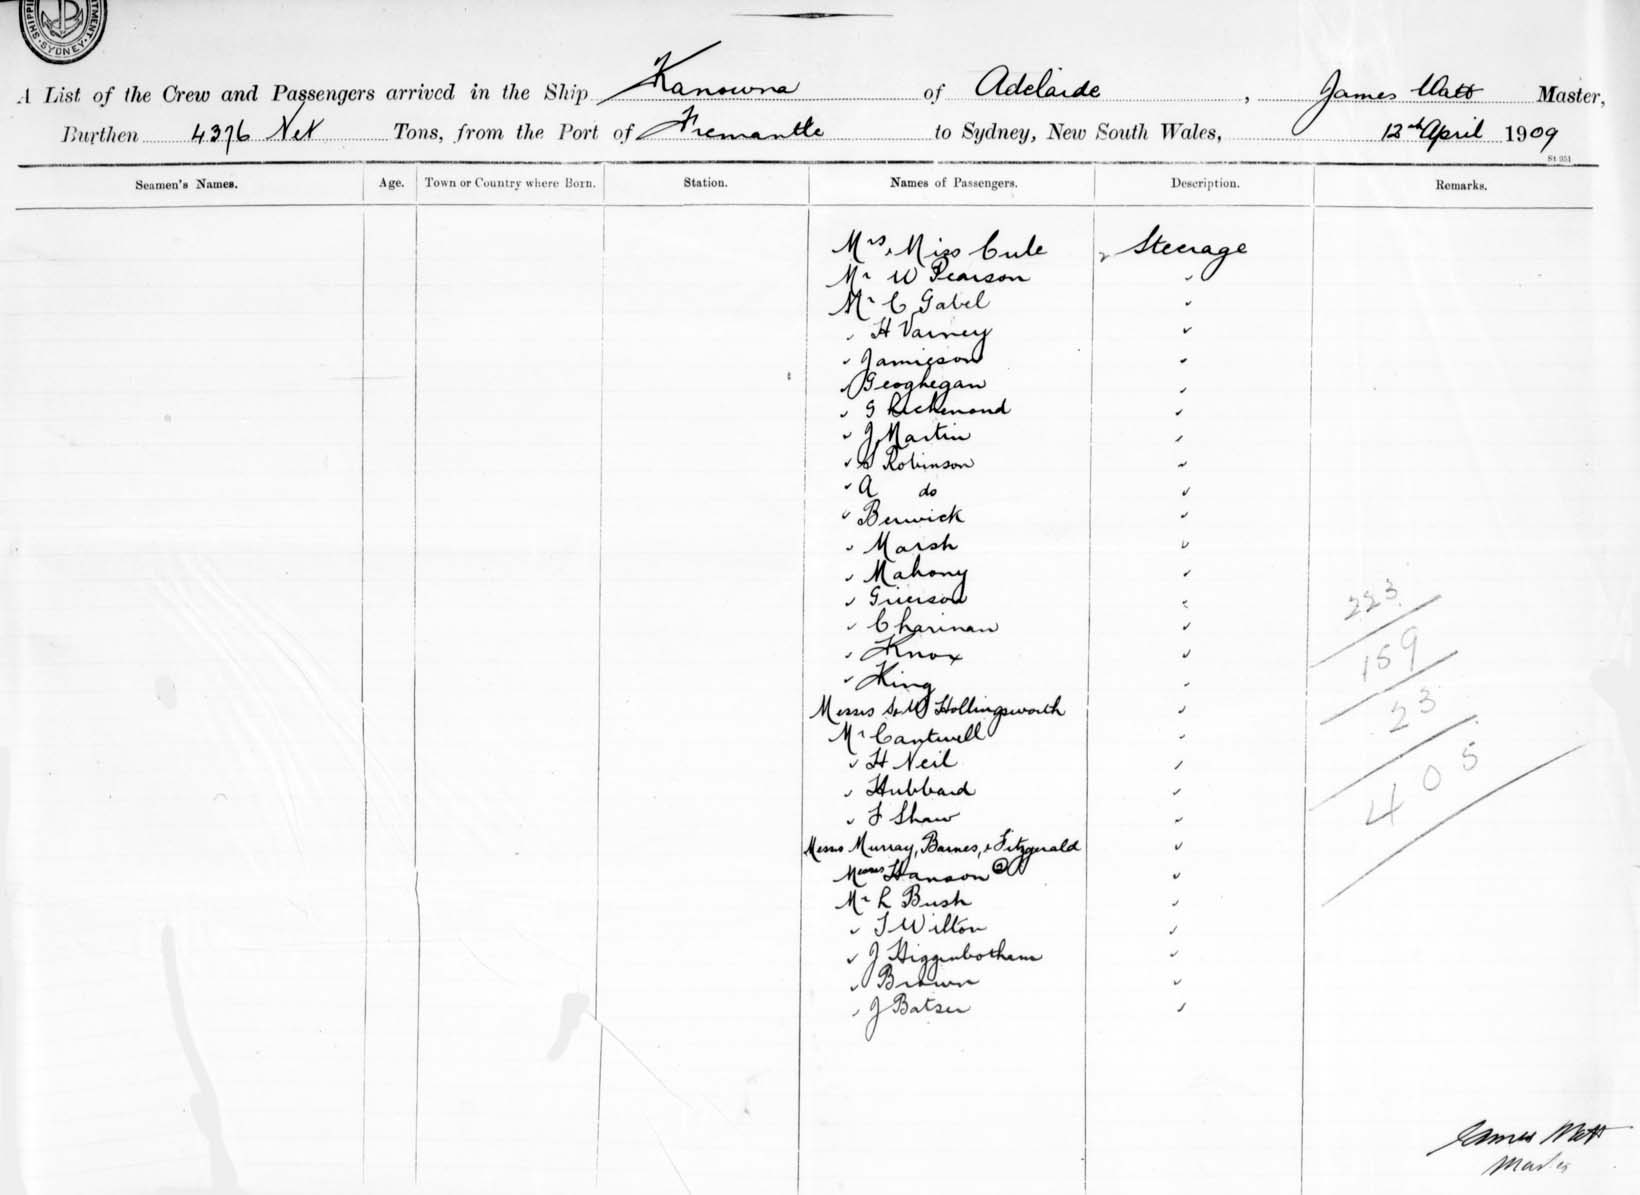 SYDNEY
A List of the Crew and Passengers arrived in the Ship Kanowna of Adelaide, James Watt Master,
Burthen 4376 Net Tons, from the Port of Fremantle to Sydney, New South Wales, 12th April 1909
St 951
Seamen's Names. Age. Town or Country where Born. Station. Names of Passengers. Description. Remarks.
Mrs & Miss Cule " Steerage
Mr W Pearson "
Mr C Gabel "
" H Varney "
" Jamieson "
" Geoghegan "
" G Richmond "
" J Martin "
" S Robinson "
" A do "
" Berwick "
" Marsh "
" Mahony "
" Grierson "
" Charman "
" Knox "
" King "
Messrs S & W Hollingsworth "
Mr Cantwell "
" H Neil "
" Hubbard "
" F Shaw "
Messrs Murray, Barnes, & Fitzgerald "
Messrs Hanson (2) "
Mr R Bush "
" T Wilton "
" J Higginbotham "
" Brown "
" J Batser "
223
159
23
405
James Watt
Master